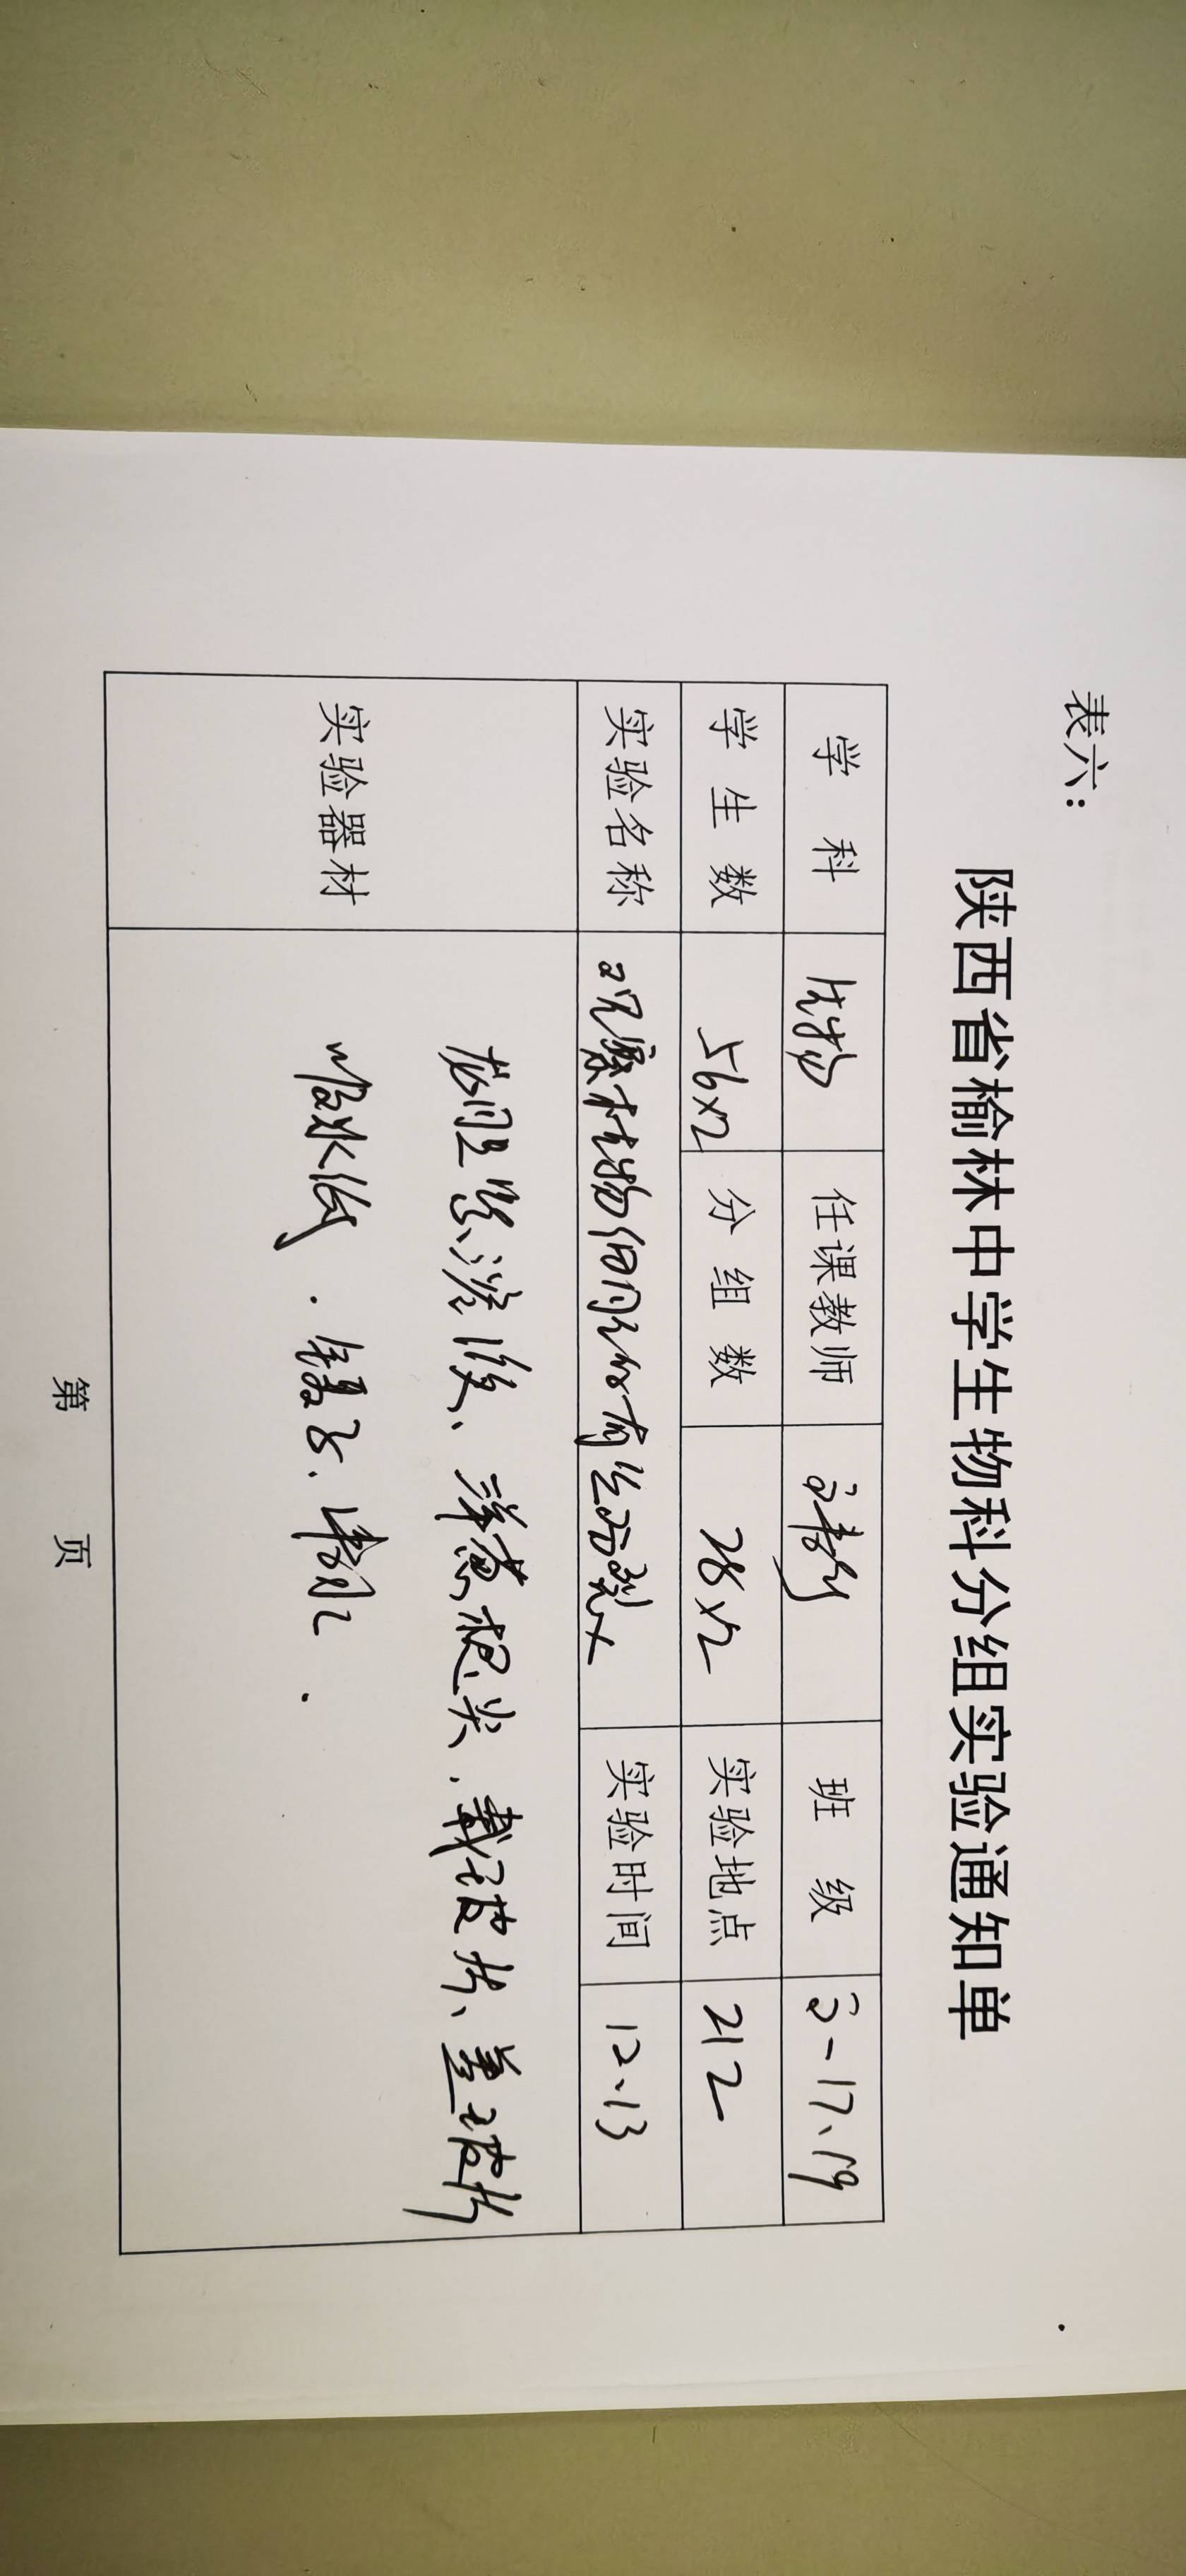 表六：
陕西省榆林中学生物科分组实验通知单
学 科 生物 任课教师 班 级 高一17、19
学 生 数 56×2 分 组 数 28×2 实验地点 212
实验名称 观察植物细胞的有丝分裂 实验时间 12.13
实验器材 龙胆紫溶液、洋葱根尖、载玻片、盖玻片
吸水纸、镊子、
第 页